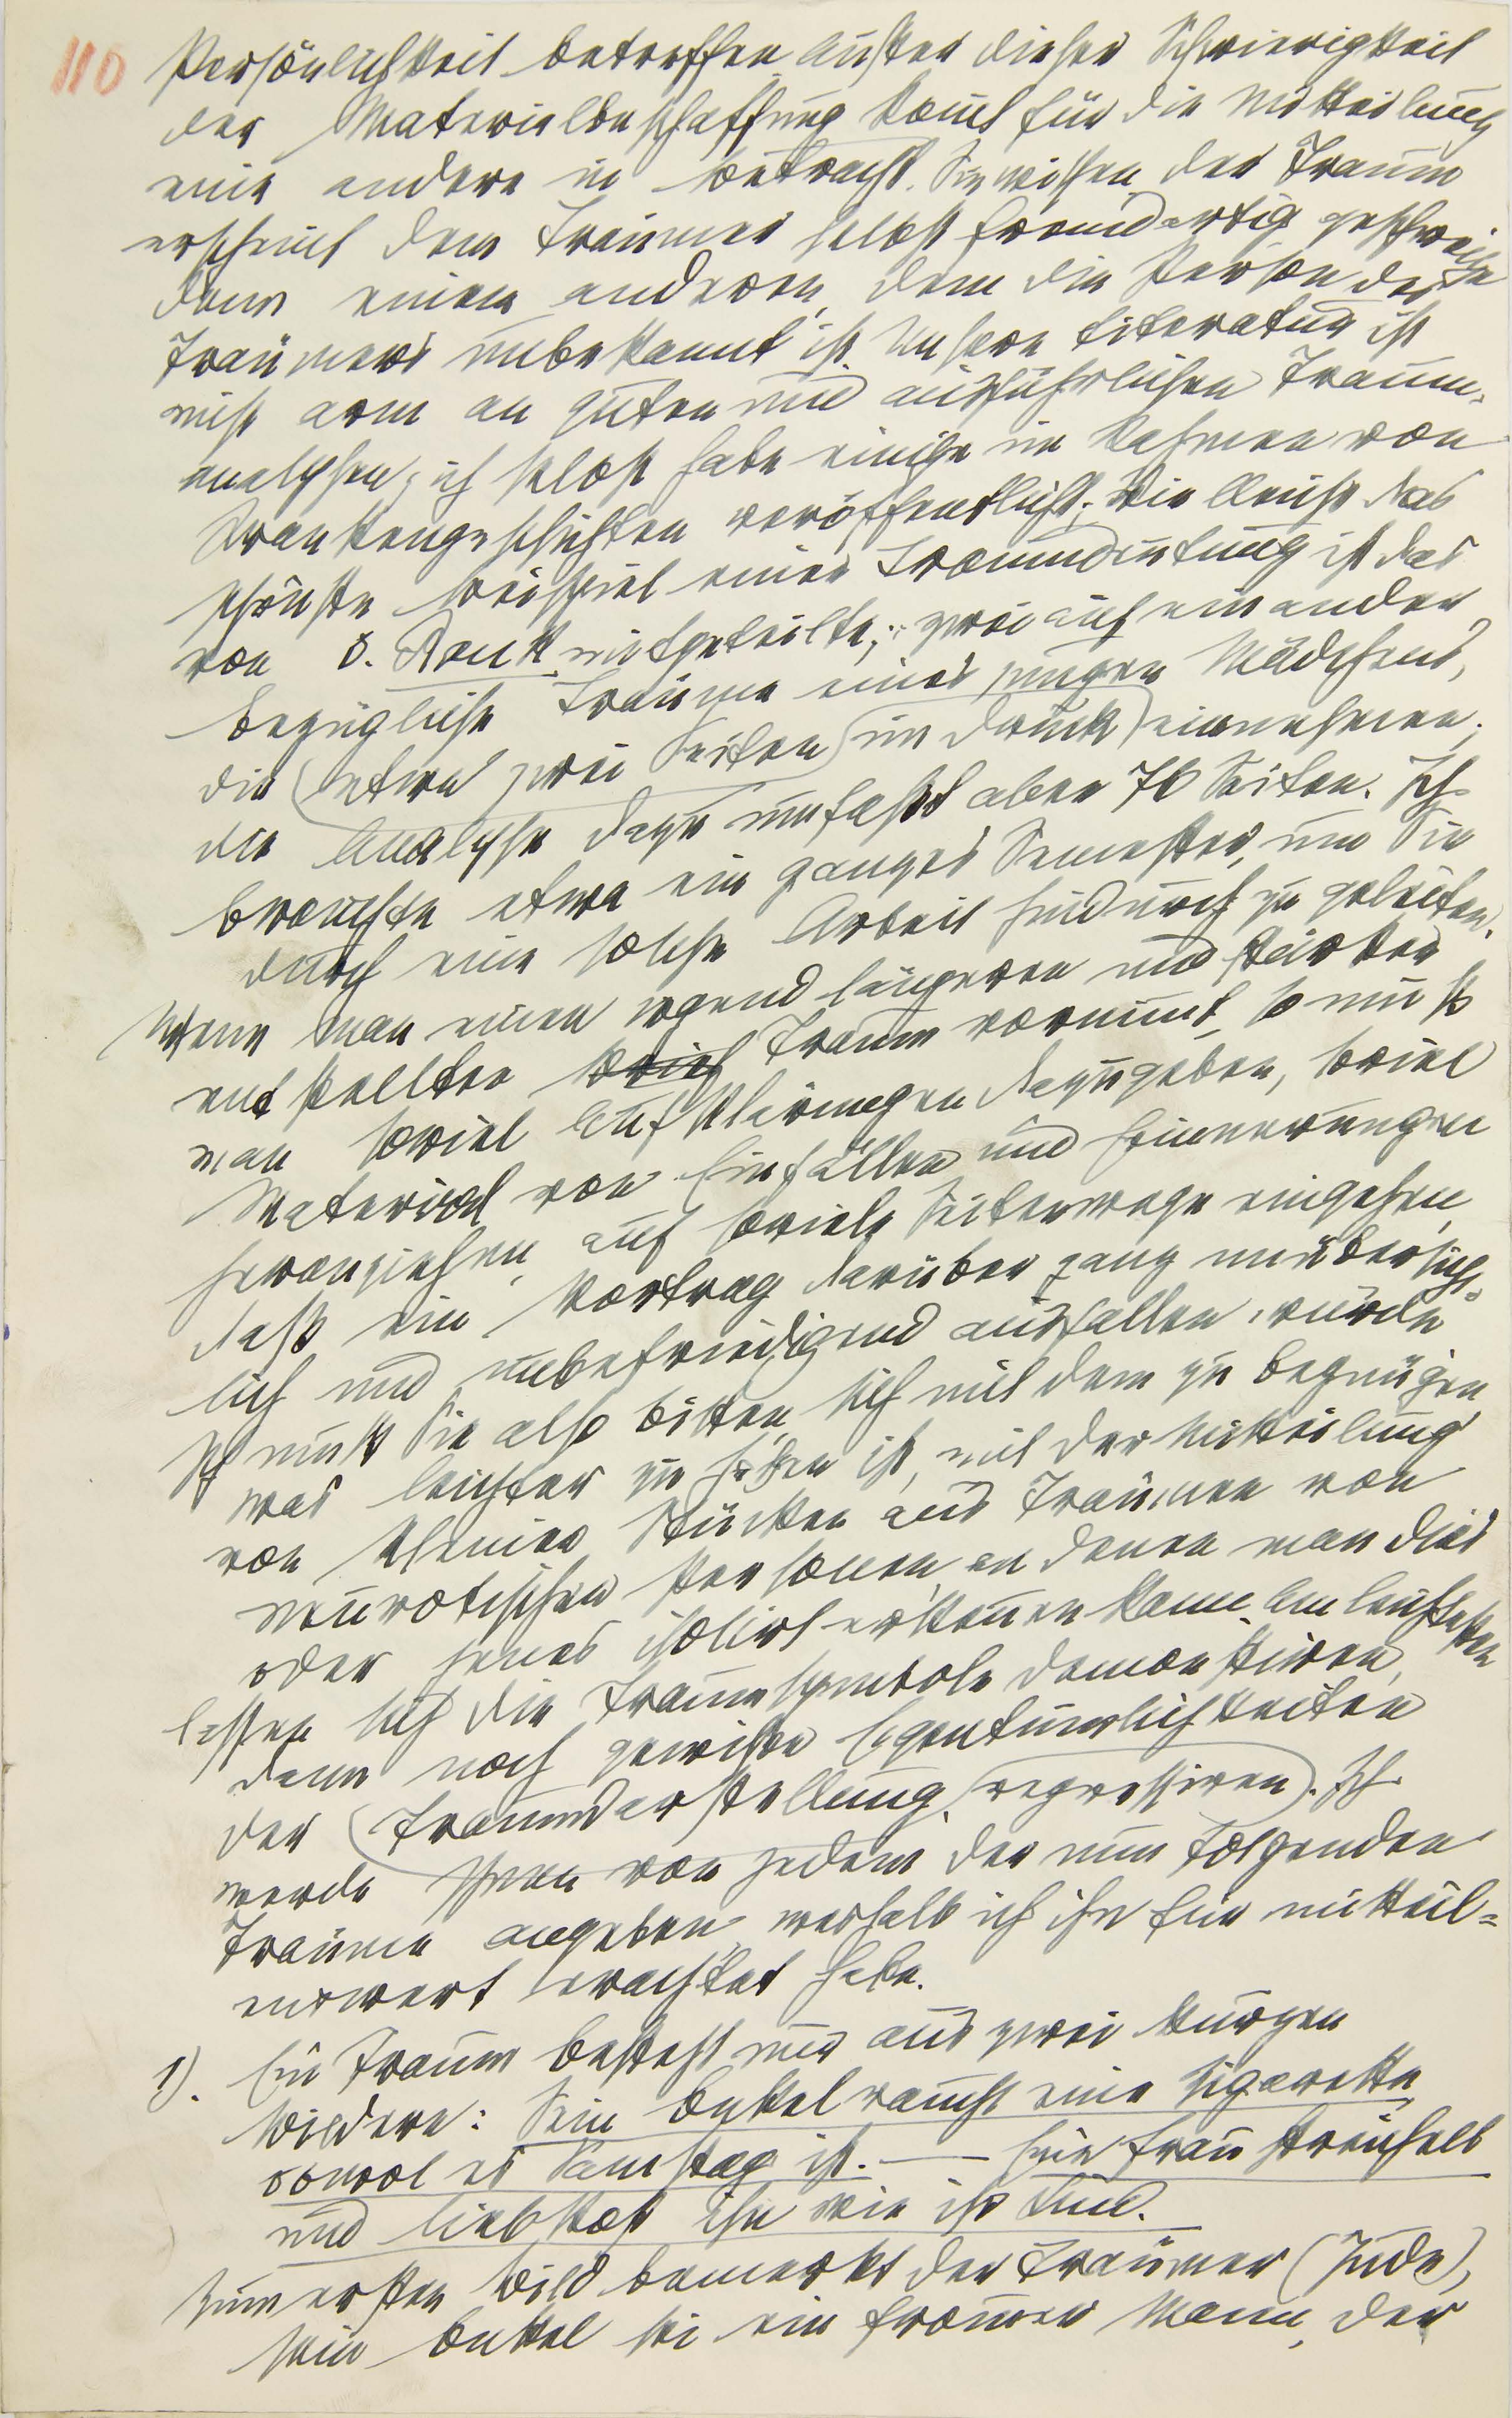 110
Persönlichkeit betreffen Außer dieser Schwierigkeit
der Materialbeschaffung komt für die Mitteilung
eine andere in betracht. Sie wissen der Traum
erscheint dem Träumer selbst fremdartig geschweige
denn einem anderen, dem die Person des
Träumers unbekannt ist. Unsere Literatur ist
nicht arm an guten und ausführlichen Traum-
analysen; ich selbst habe einige im Rahmen von
Krankengeschichten veröffentlicht; Vielleicht das
schönste beispiel einer Traumdeutung ist das
von O. Rank mitgeteilte, zwei auf einander
bezügliche Träume eines jungen Mädchens,
die (etwa zwei Seiten) im Druck) einnehmen;
die Analyse dazu umfaßt aber 76 Seiten. Ich
brauchte etwa ein ganzes Semester, um Sie
durch eine solche Arbeit hindurch zu geleiten.
Wenn man einen irgend längeren und stärker
entstellten Traum vornimt, so muß
man soviel Aufklärungen dazugeben, soviel
Material von Einfällen und Erinnerungen
heranziehen, auf soviele Seitenwege eingehen,
daß ein Vortrag darüber ganz unübersicht-
lich und unbefriedigend ausfallen würde
Ich muß Sie also bitten, sich mit dem zu begnügen
was leichter zu haben ist, mit der Mitteilung
von kleinen Stücken aus Träumen von
neurotischen Personen, an denen man dies
oder jenes isolirt erkenen kann. Am leichtesten
lassen sich die Traumsymbole demonstriren,
dann noch gewisse Eigentümlichkeiten
der (Traumdarstellung, regressiven). Ich
werde Ihnen von jedem der nun folgenden
Träume angeben, weshalb ich ihn für mitteil=
enswert erachtet habe.
1). Ein Traum besteht nur aus zwei kurzen
bildern: Sein Onkel raucht eine Zigarette,
obwol es Samstag ist. —— Eine Frau streichelt
und liebkost ihn wie ihr Kind.
Zum ersten Bild bemerkt der Träumer (Jude),
sein Onkel sei ein frommer Mann, der